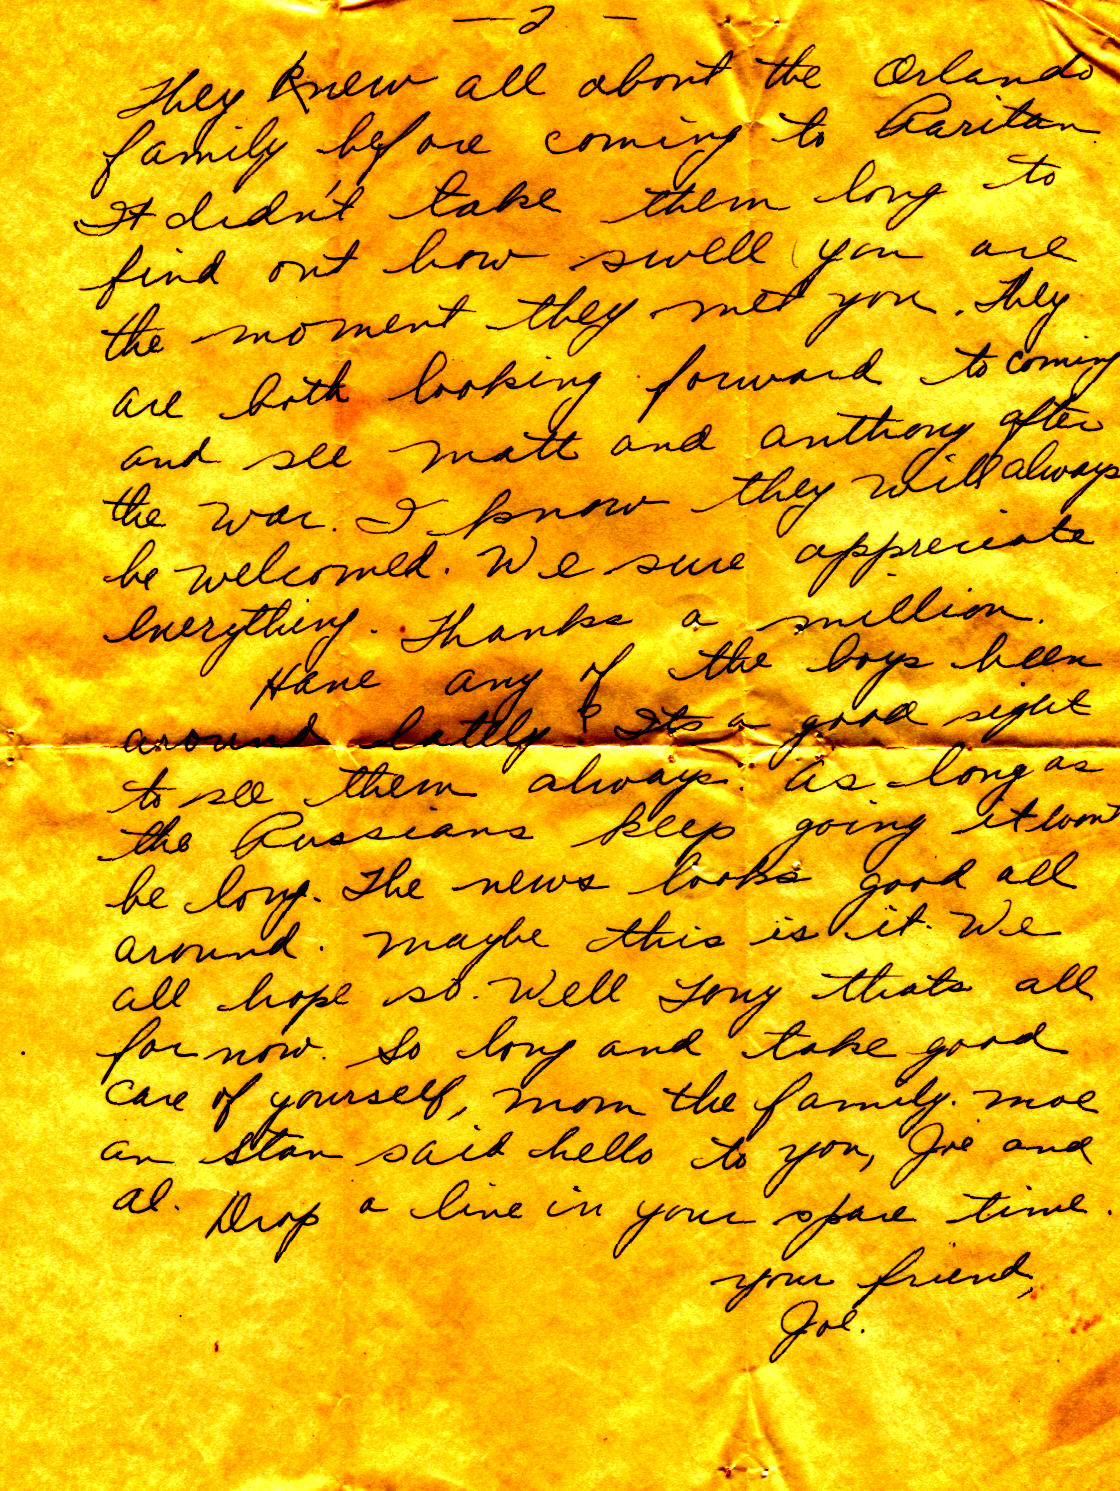 — 2 —
They knew all about the Orlando
family before coming to Raritan
It didn't take them long to
find out how swell you are
the moment they met you. They
are both looking forward to coming
and see Matt and Anthony after
the war. I know they will always
be welcomed. We sure appreciate
everything. Thanks a million.
Have any of the boys been
around lattly? Its a good sight
to see them always. As long as
the Russians keep going it wont
be long. The news looks good all
around. Maybe this is it. We
all hope so. Well Tony thats all
for now. So long and take good
care of yourself, mom the family. Moe
an Stan said hello to you, Joe and
Al. Drop a line in your spare time.
your friend,
Joe.